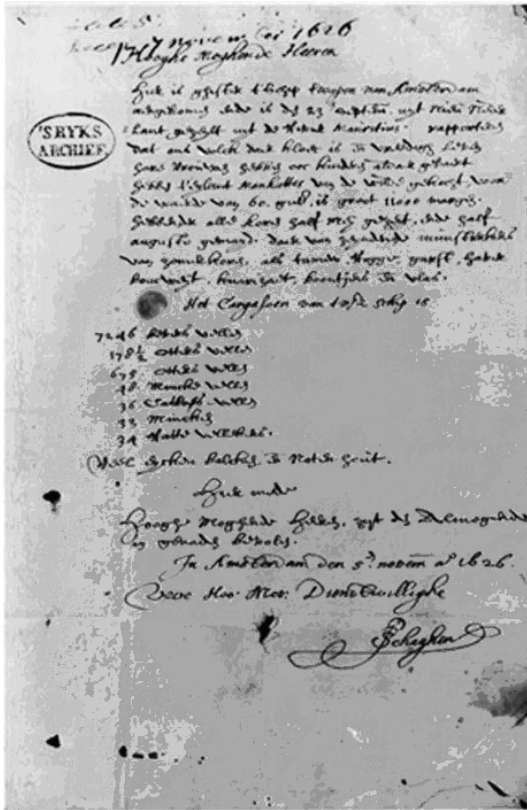 7 novem 1626
Hooghe Moghende Heeren
'SRYKS
ARCHIEF
Hier is ghister t'schip t'wapen van Amsterdam
aengekomen ende is den 23 septem. uyt Nieu Neder
lant gezeylt uyt de Rivier Mauritius. rapporteren
dat ons volck daer kloeck is en vreedigh leven
hare Vrouwen hebben ooc kinderen aldaer gebaert
hebben t'eylant Manhattes van de wilde gekocht, voor
de waerde van 60. guld. is groot 11000 morgen.
hebbende alle koren half mey gezeyt, ende half
augusto gemayd. daer van zeyndende munsterkens
van zomerkoren, als tarruw, Rogge, garst, haver
boucweyt, knarizaet, boontjes en vlas.
Het Cargasoen van t'vsz schip is
7246 bevers vellen
178½ otters vellen
675 otters vellen
48 Mincke vellen
36 Catloes vellen
33 Mincken
34 Ratte vellekens.
Veel eycken balcken en Noten hout.
Hier mede
Hooghe Moghende Heeren, zyt den Almogende
in genaden bevolen.
In Amsterdam den 5 novem aº 1626.
Uwe Hoo: Moo: Dienstwillighe
P Schaghen